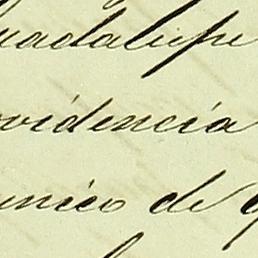 uadalupe
videncia
unico de